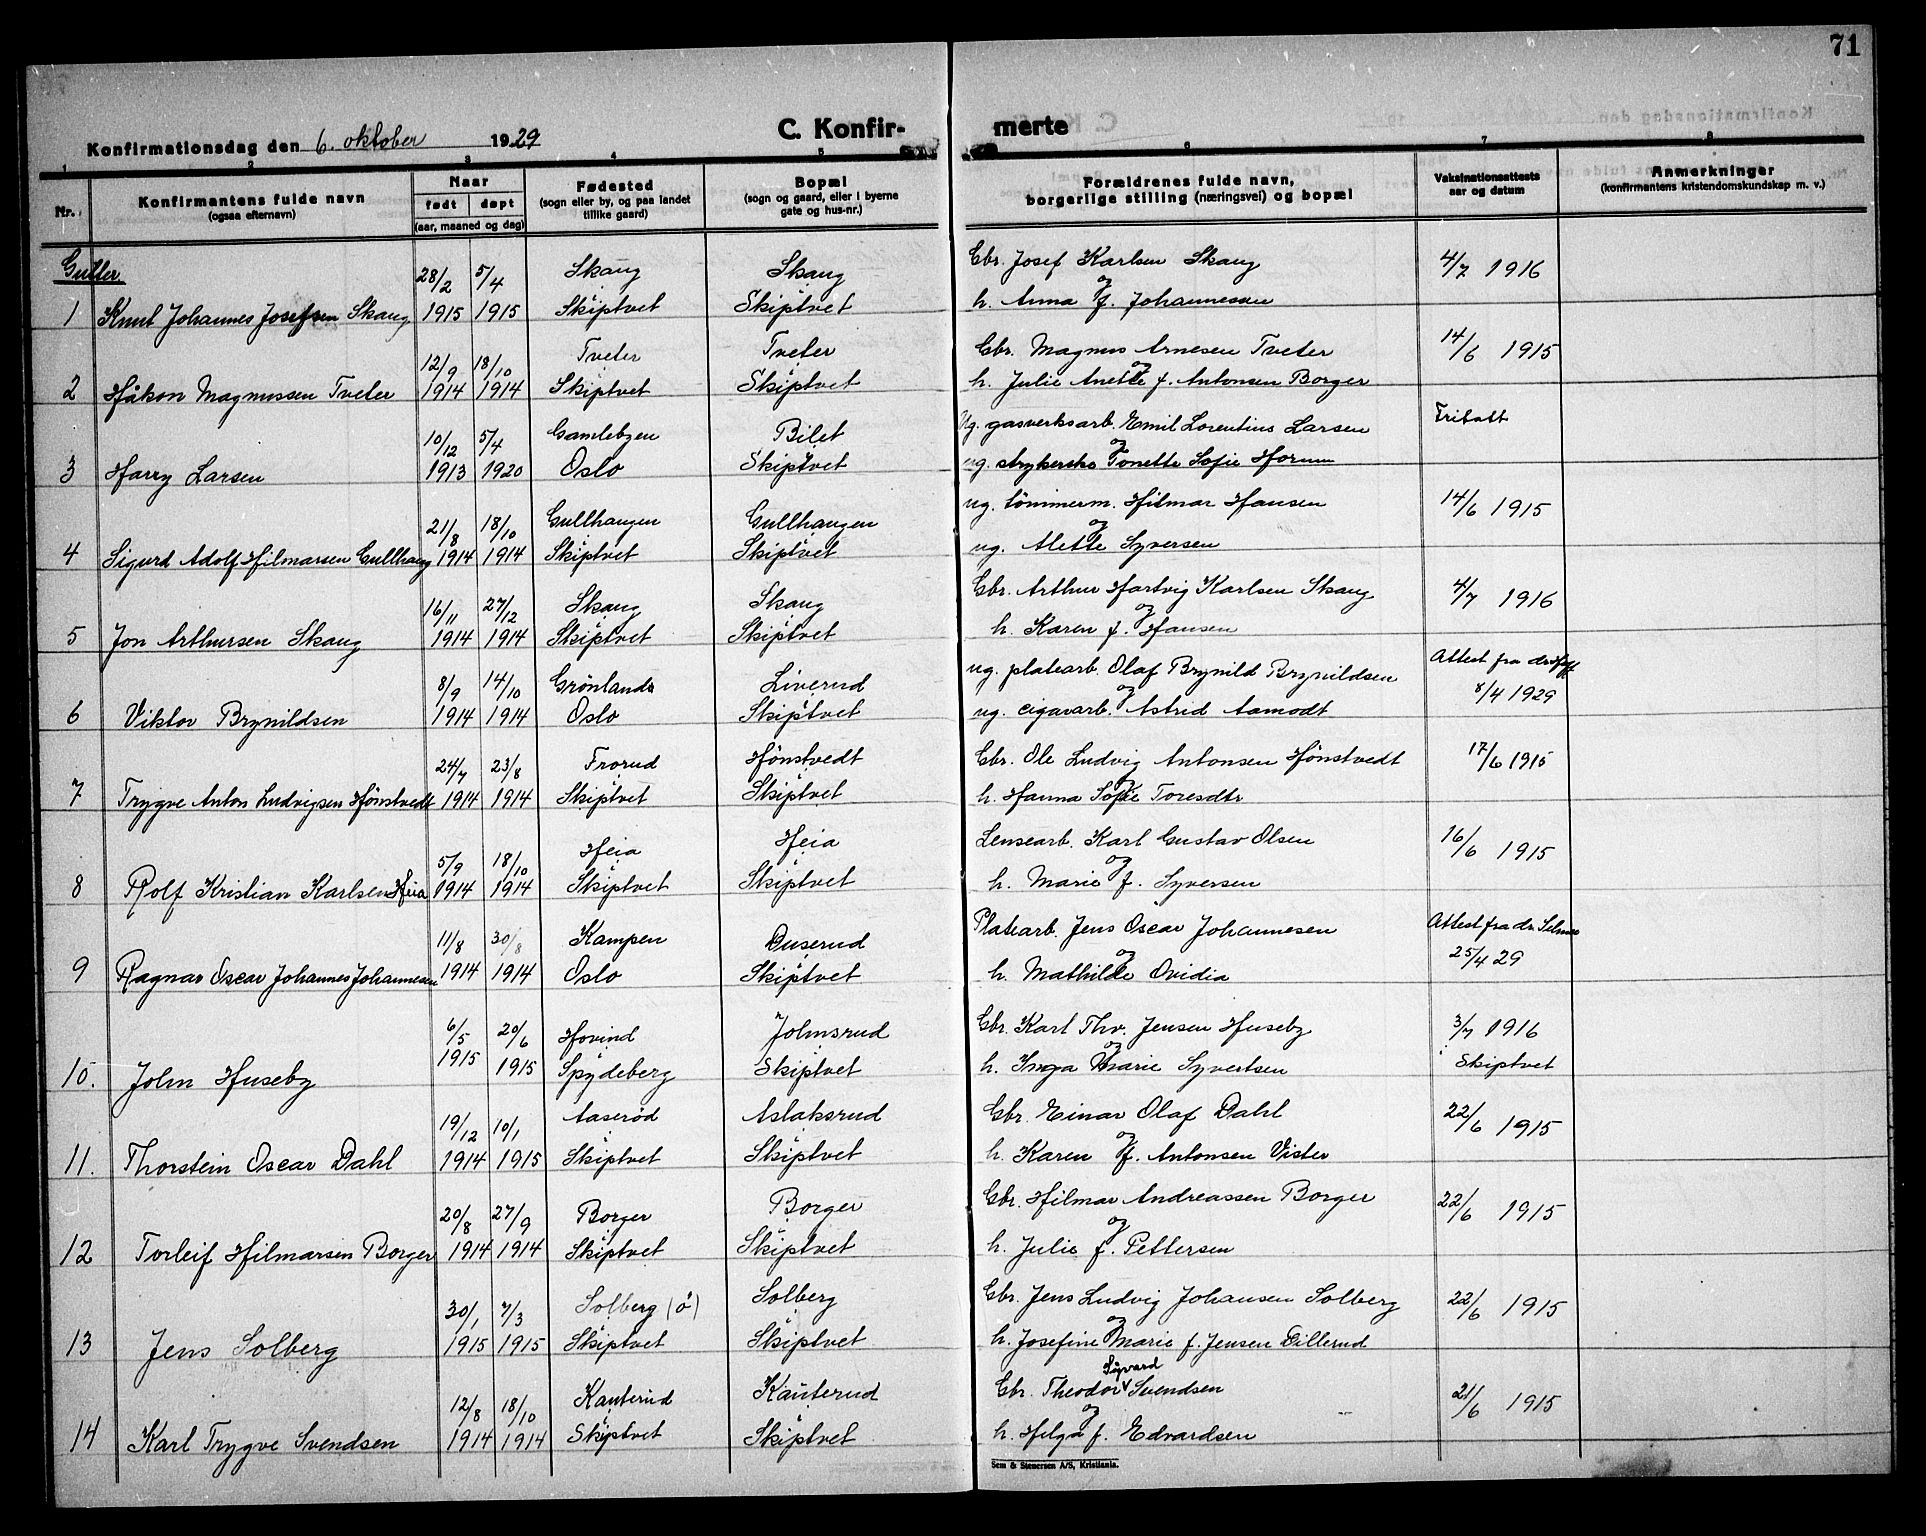 71
C. Konfir-merte
Konfirmationsdag den 6. oktober 1929
1 2 3 4 5 6 7 8
Nr. Konfirmantens fulde navn (ogsaa efternavn) Naar født døpt (aar, maaned og dag) Fødested (sogn eller by, og paa landet tillike gaard) Bopæl (sogn og gaard, eller i byerne gate og hus-nr.) Forældrenes fulde navn, borgerlige stilling (næringsvei) og bopæl Vaksinationsattests aar og datum Anmerkninger (konfirmantens kristendomskundskap m. v.)
Gutter.
28/2 5/4 Skaug Skaug Gbr. Josef Karlsen Skaug 4/7 1916
1 Knut Johannes Josefsen Skaug 1915 1915 Skiptvet Skiptvet og h. Anna f. Johannessen
12/9 18/10 Tveter Tveter Gbr. Magnus Arnesen Tveter 14/6 1915
2 Håkon Magnussen Tveter 1914 1914 Skiptvet Skiptvet og h. Julie Anette f. Antonsen Borger
10/12 5/4 Gamlebyen Bilet Ug. gasverksarb. Emil Lorentius Larsen Fritatt
3 Harry Larsen 1913 1920 Oslo Skiptvet og ug. strykerske Tonette Sofie Horum
21/8 18/10 Gullhaugen Gullhaugen ug. tömmerm. Hilmar Hansen 14/6 1915
4 Sigurd Adolf Hilmarsen Gullhaug 1914 1914 Skiptvet Skiptvet og ug. Alette Syversen
16/11 27/12 Skaug Skaug Gbr. Arthur Hartvig Karlsen Skaug 4/7 1916
5 Jon Arthursen Skaug 1914 1914 Skiptvet Skiptvet og h. Karen f. Hansen
8/9 14/10 Grönlands Liverud ug. platearb. Olaf Brynild Brynildsen Attest fra dr.
6 Viktor Brynildsen 1914 1914 Oslo Skiptvet og ug. cigararb. Astrid Aamodt 8/4 1929
24/7 23/8 Frorud Hönstvedt Gbr. Ole Ludvig Antonsen Hönstvedt 17/6 1915
7 Trygve Anton Ludvigsen Hönstvedt 1914 1914 Skiptvet Skiptvet og h. Hanna Sofie Toresdtr
5/9 18/10 Heia Heia Lensearb. Karl Gustav Olsen 16/6 1915
8 Rolf Kristian Karlsen Heia 1914 1914 Skiptvet Skiptvet og h. Marie f. Syversen
11/8 30/8 Kampen Duserud Platearb. Jens Oscar Johannesen Attest fra dr. Selmer
9 Ragnar Oscar Johannes Johannesen 1914 1914 Oslo Skiptvet og h. Mathilde Ovidia 25/4 29
6/5 20/6 Hovind Johnsrud Gbr. Karl Thv. Jensen Huseby 3/7 1916
10. John Huseby 1915 1915 Spydeberg Skiptvet og h. Inga Marie Syvertsen i Skiptvet
19/12 10/1 Aaseröd Aslaksrud Gbr. Einar Olaf Dahl 22/6 1915
11. Thorstein Oscar Dahl 1914 1915 Skiptvet Skiptvet og h. Karen f. Antonsen Vister
20/8 27/9 Borger Borger Gbr. Hilmar Andreassen Borger 22/6 1915
12 Torleif Hilmarsen Borger 1914 1914 Skiptvet Skiptvet og h. Julie f. Pettersen
30/1 7/3 Solberg (ö) Solberg Gbr. Jens Ludvig Johansen Solberg 22/6 1915
13 Jens Solberg 1915 1915 Skiptvet Skiptvet og h. Josefine Marie f. Jensen Dillerud
12/8 18/10 Kauterud Kauterud Gbr. Theodor Syvard Svendsen 21/6 1915
14 Karl Trygve Svendsen 1914 1914 Skiptvet Skiptvet og h. Helga f. Edvardsen
Sem & Stenersen A/S, Kristiania.